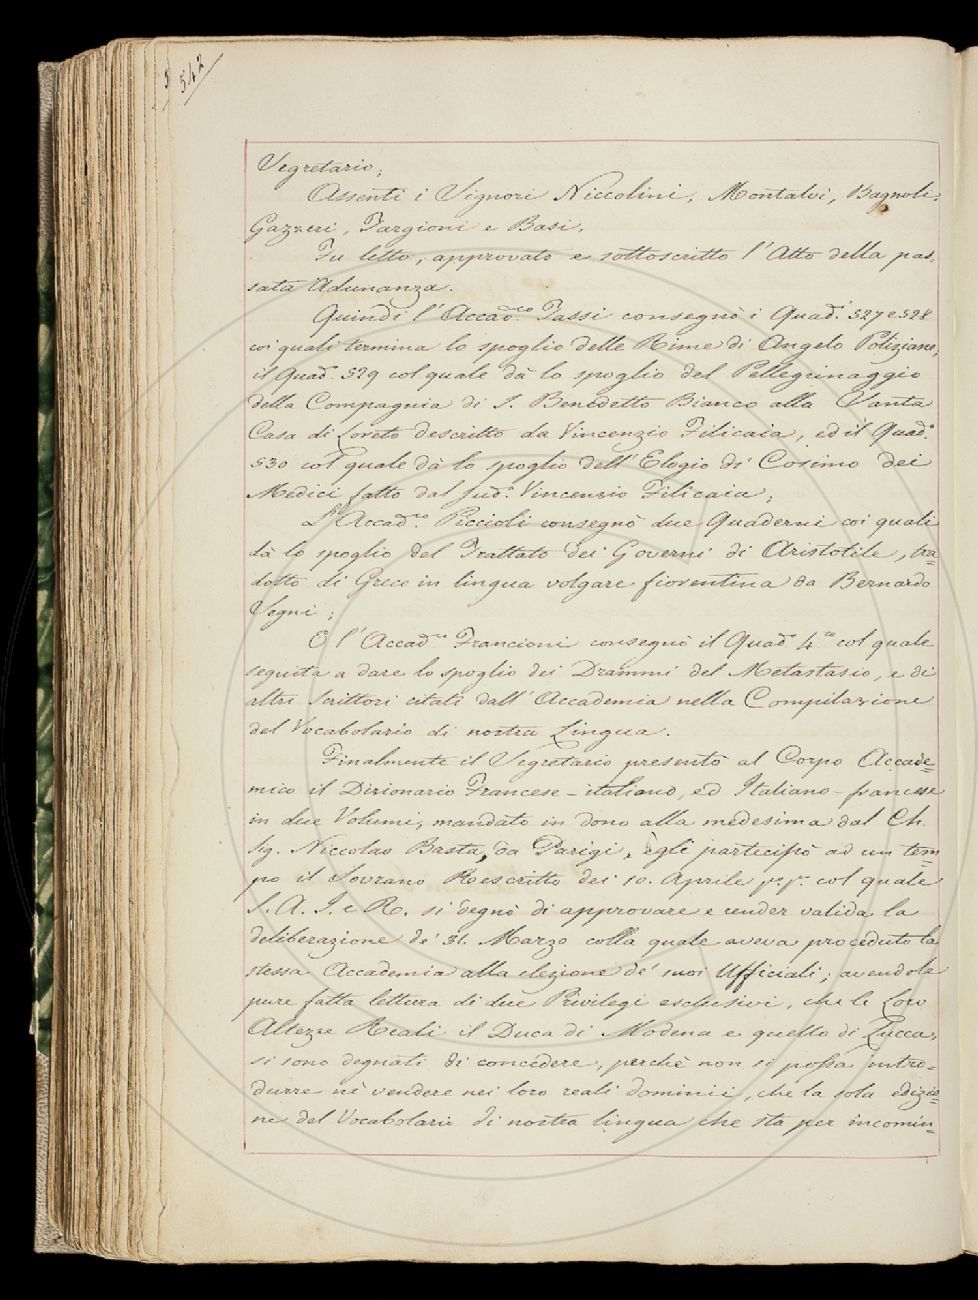 542
Segretario;
Assenti i Signori Niccolini, Montalvi, Bagnoli,
Gazzeri, Targioni e Basi.
Fu letto, approvato e sottoscritto l'Atto della pas=
sata Adunanza.
Quindi l'Accad.co Tassi consegnò i Quad.i 527 e 528
coi quali termina lo spoglio delle Rime di Angelo Poliziano,
il Quad. 529 col quale dà lo spoglio del Pellegrinaggio
della Compagnia di S. Benedetto Bianco alla Santa
Casa di Loreto descritto da Vincenzio Filicaia, ed il Quad.o
530 col quale dà lo spoglio dell'Elogio di Cosimo dei
Medici fatto dal sud.o Vincenzio Filicaia;
L'Accad.co Piccioli consegnò due Quaderni coi quali
dà lo spoglio del Trattato dei Governi di Aristotile, tra=
dotto di Greco in lingua volgare fiorentina da Bernardo
Segni;
E l'Accad.co Francioni consegnò il Quad.o 4.to col quale
seguita a dare lo spoglio dei Drammi del Metastasio, e di
altri Scrittori citati dall'Accademia nella Compilazione
del Vocabolario di nostra Lingua.
Finalmente il Segretario presentò al Corpo Accade=
mico il Dizionario Francese-italiano, ed Italiano-francese
in due Volumi, mandato in dono alla medesima dal Ch.
Sig. Niccolao Basta, da Parigi, egli partecipò ad un tem=
po il Sovrano Rescritto dei 10. Aprile p.o p.o col quale
S. A. I. e R. si degnò di approvare e render valida la
deliberazione de' 31. Marzo colla quale aveva proceduto la
stessa Accademia alla elezione de' suoi Ufficiali; avendole
pure fatta lettura di due Privilegi esclusivi, che le Loro
Altezze Reali il Duca di Modena e quello di Lucca,
si sono degnati di concedere, perchè non si possa intro=
durre nè vendere nei loro reali dominii, che la sola edizio=
ne del Vocabolario di nostra lingua che sta per incomin=